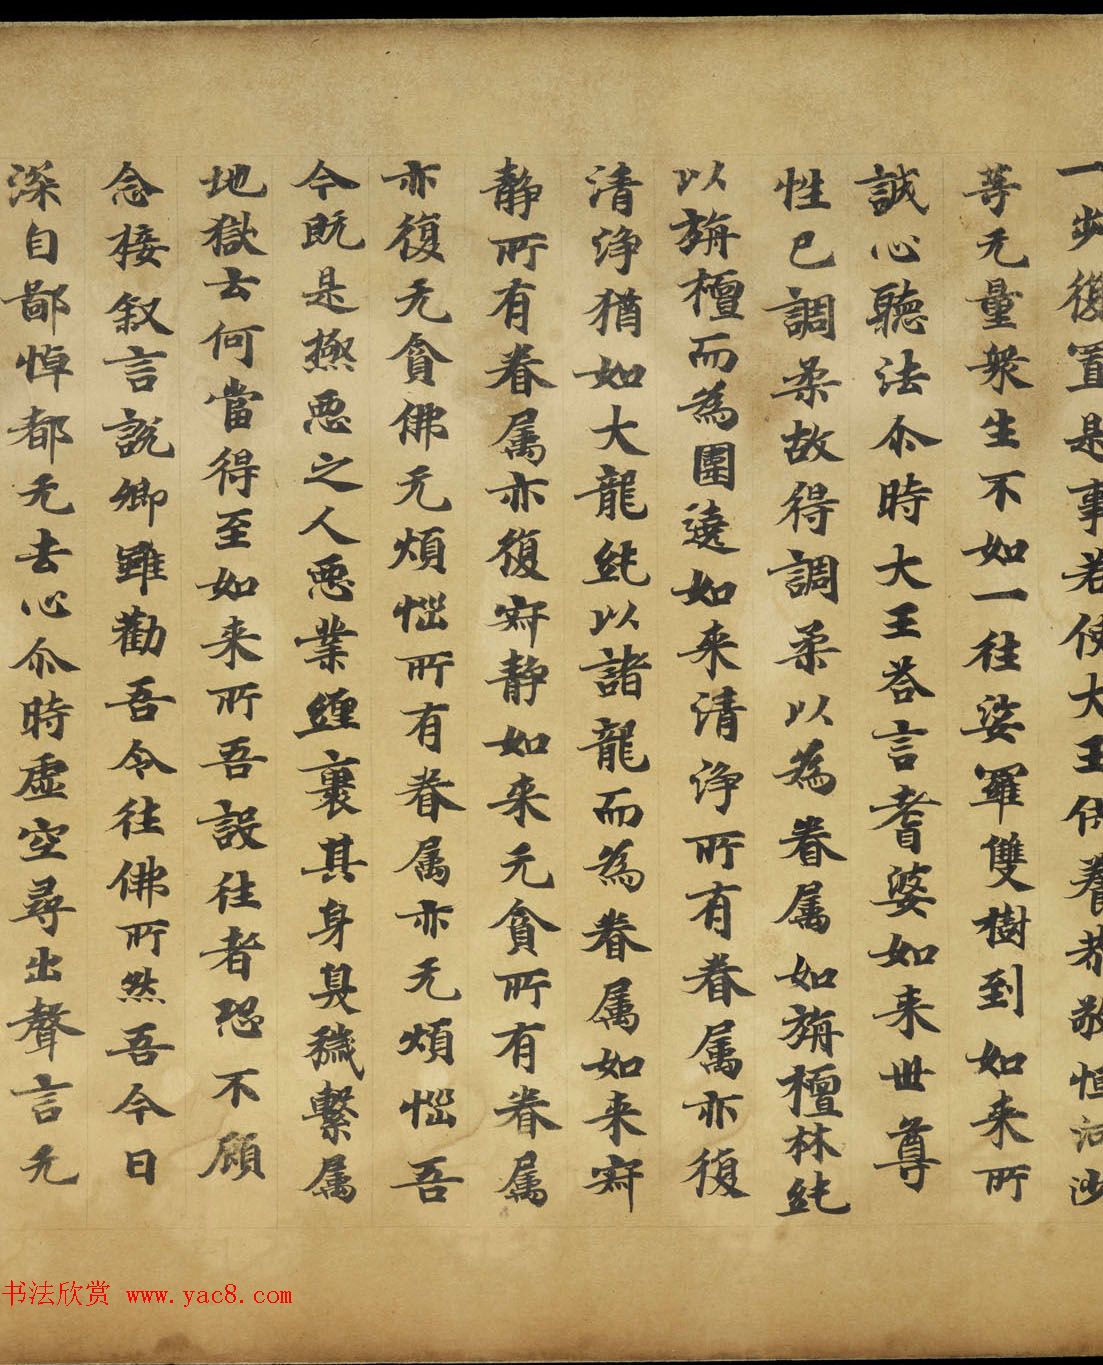 一步復置是事若使大王供養恭敬恒河沙
等无量衆生不如一往娑羅雙樹到如来所
誠心聽法尒時大王荅言耆婆如来世尊
性已調柔故得調柔以為眷属如旃檀林純
以旃檀而為圍遶如来清淨所有眷属亦復
清淨猶如大龍純以諸龍而為眷属如来寂
静所有眷属亦復寂静如来无貪所有眷属
亦復无貪佛无煩惱所有眷属亦无煩惱吾
今既是極悪之人悪業纏裹其身臭穢繫属
地獄云何當得至如来所吾設往者恐不顧
念接叙言說卿雖勸吾令往佛所然吾今日
深自鄙悼都无去心尒時虚空尋出聲言无
书法欣赏 www.yac8.com